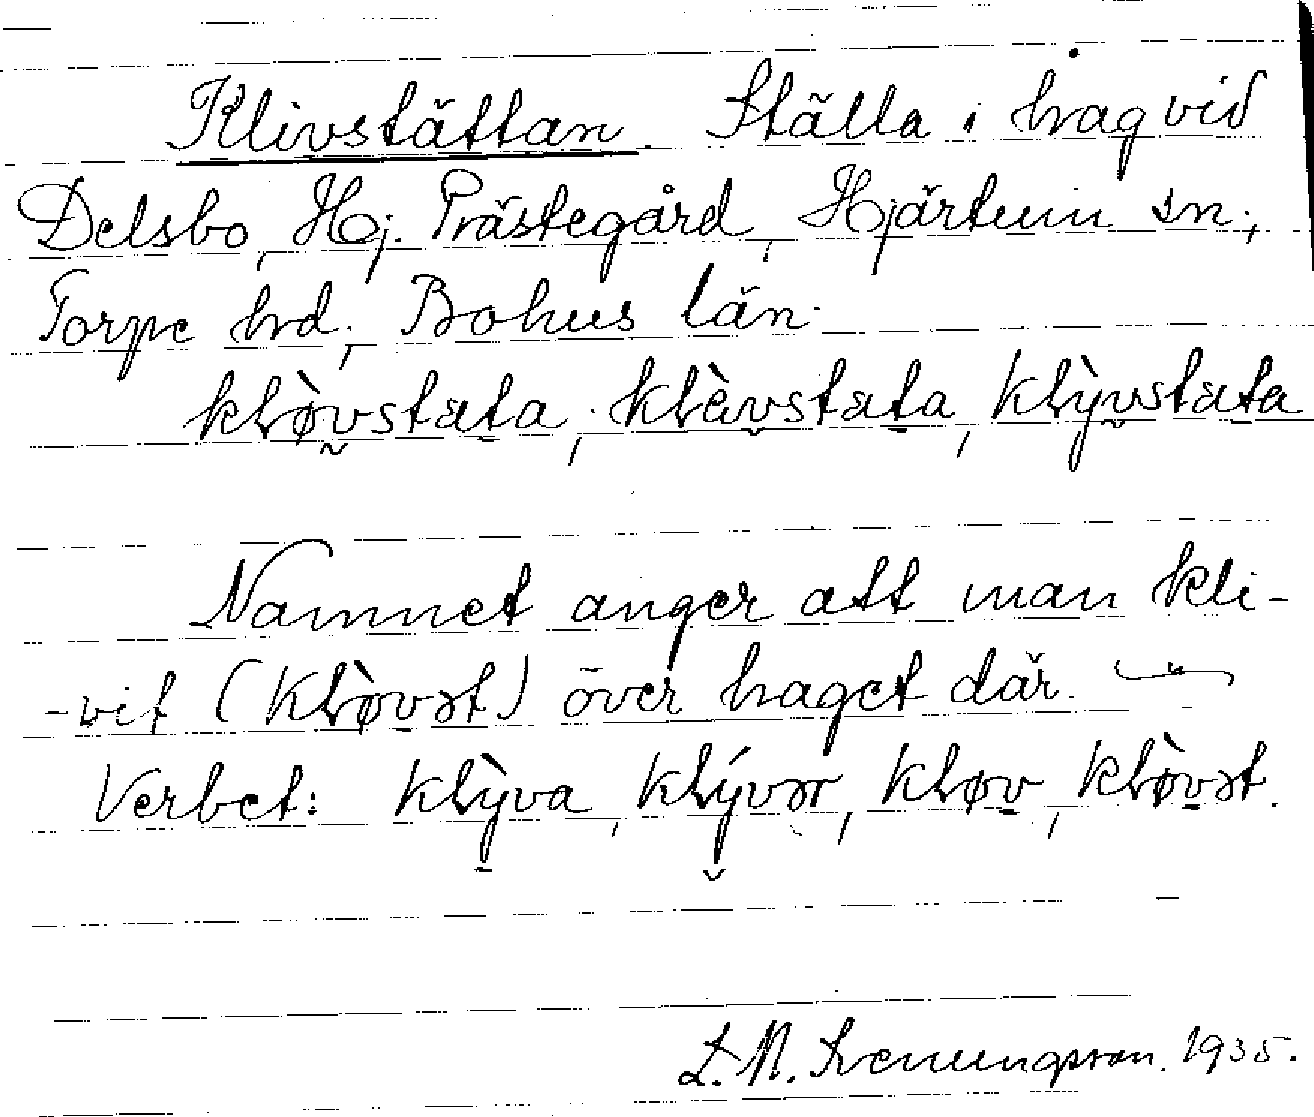 Klivstättan. Ställa i hag vid
Delsbo, Hj. Prästegård, Hjärtum sn,
Torpe hd, Bohus län.
klòvstata, klàvstata, klỳvstata
Namnet anger att man kli-
-vit (klø̀vət) över haget där.
Verbet: klỳva, klývər, kløv, klø̀vət.
L. N. 1935.